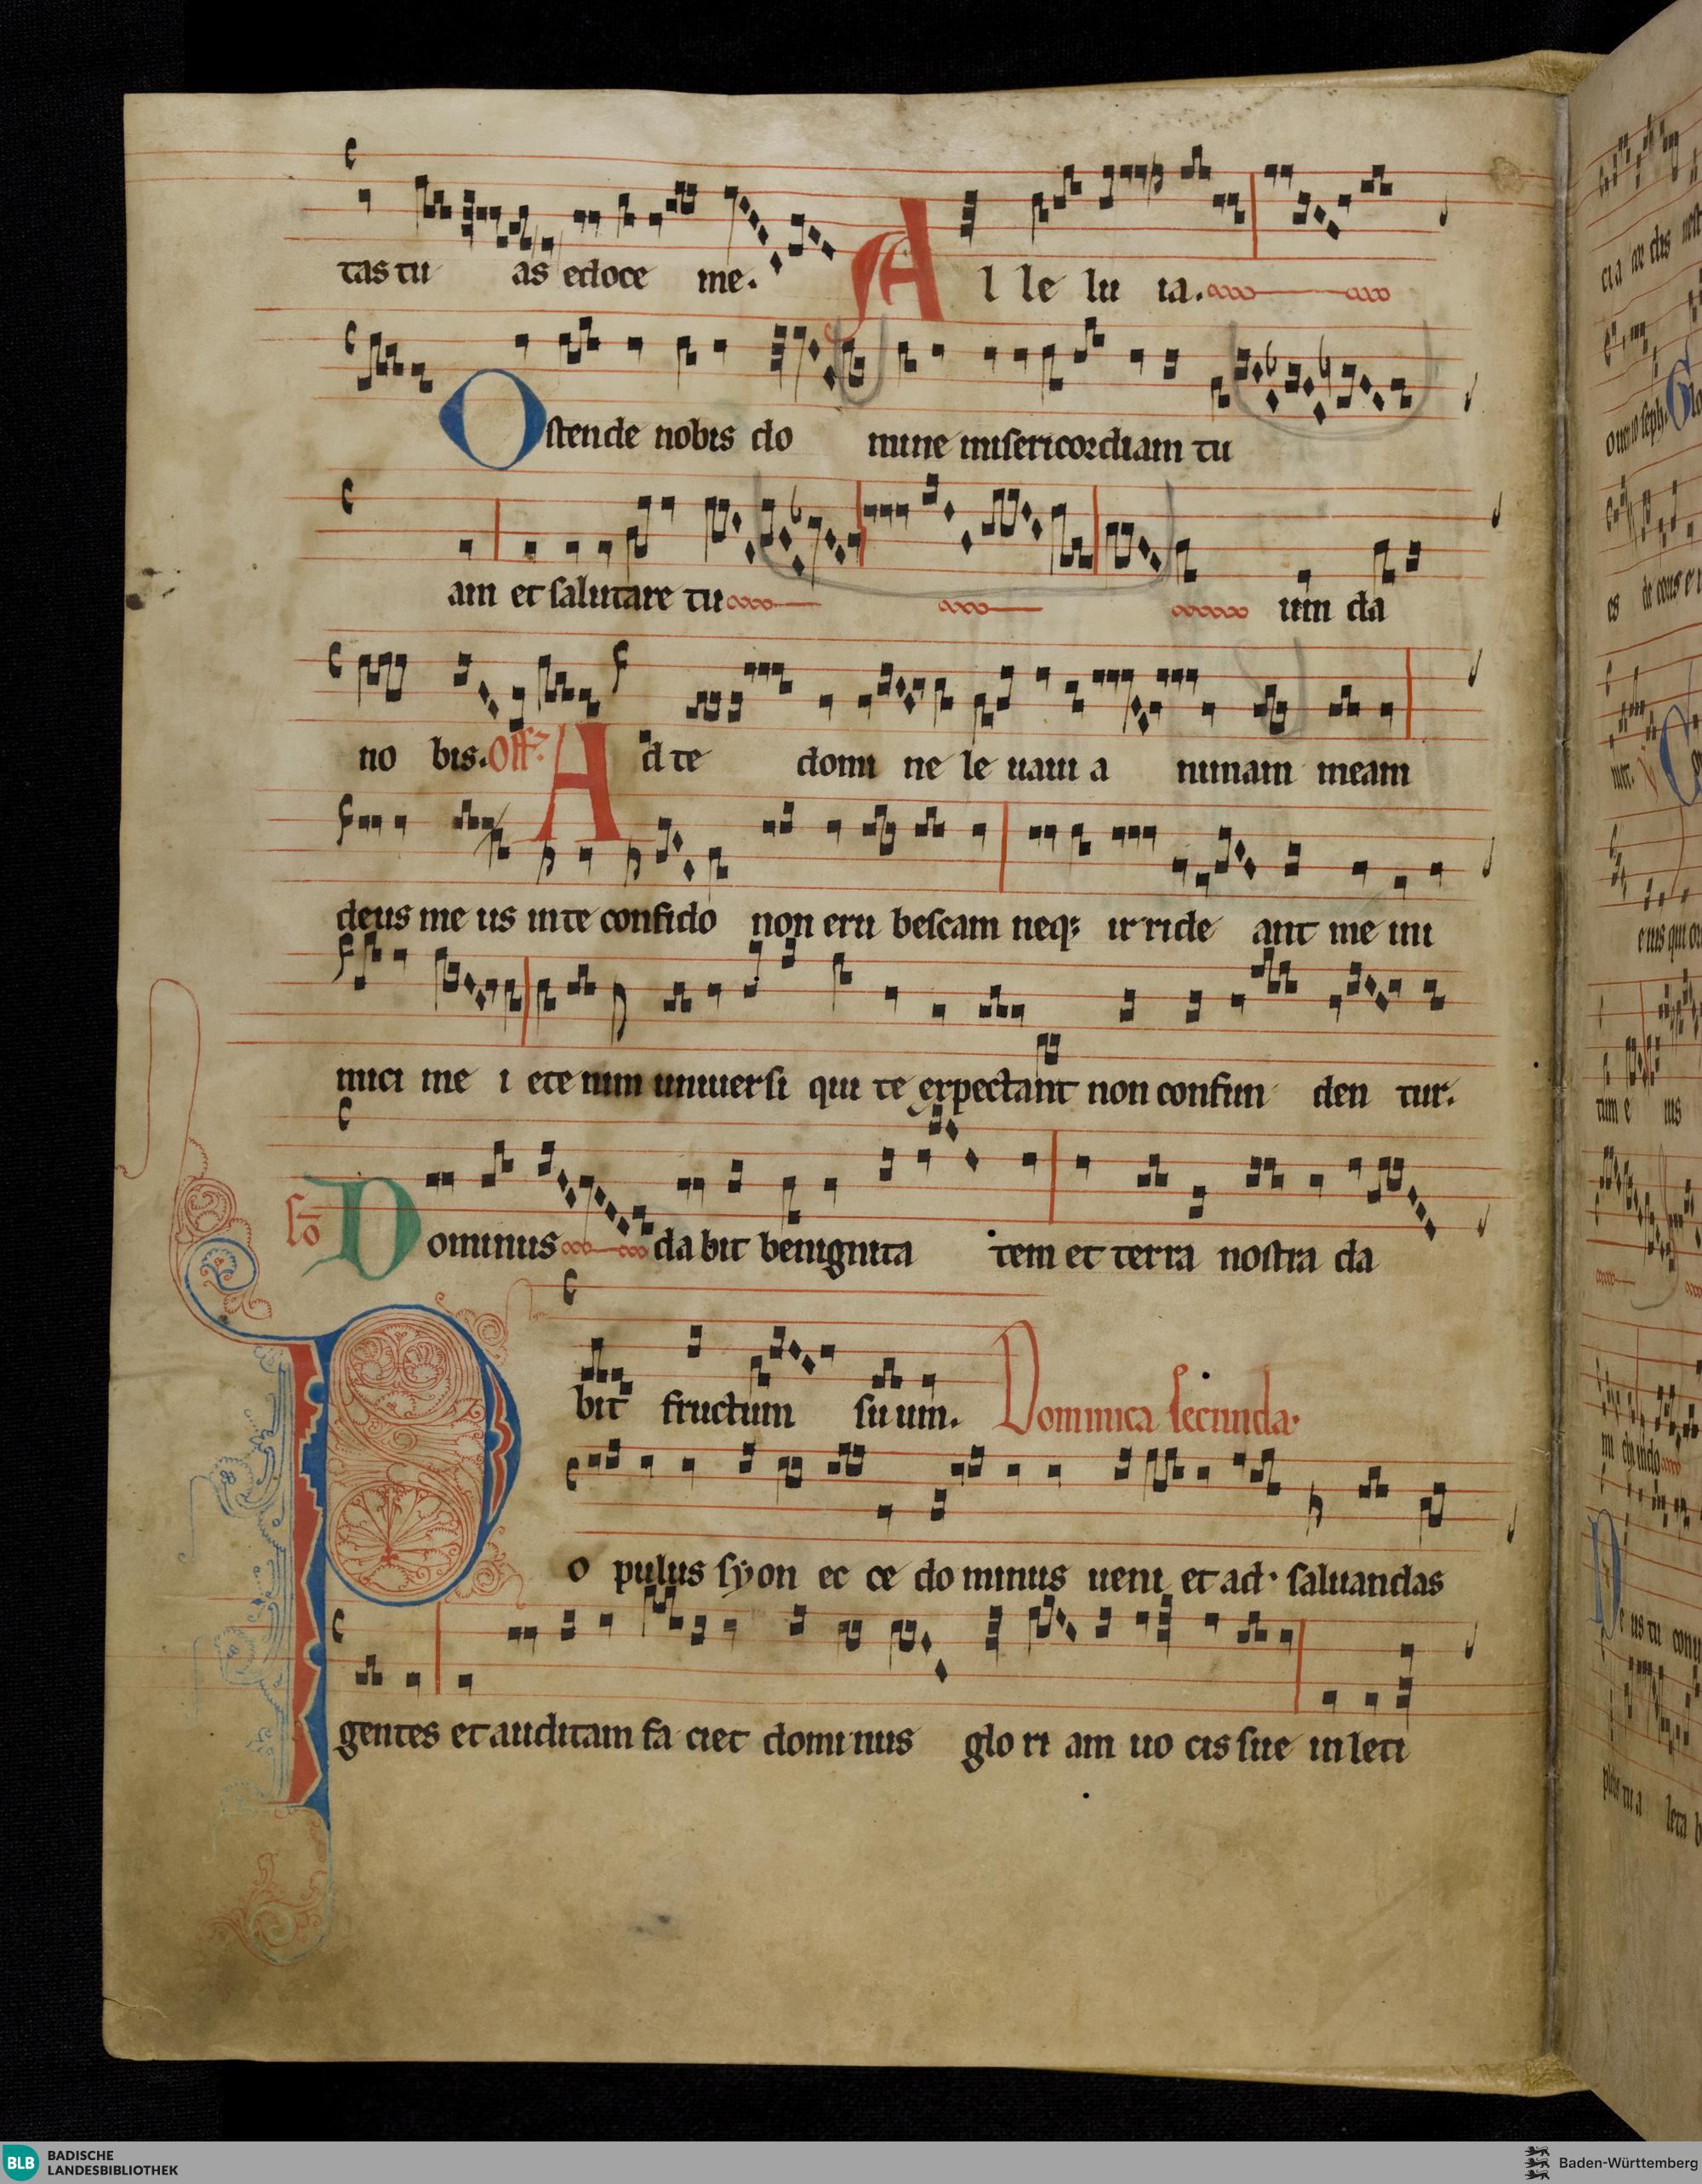 tas tu as edoce me. Al le lu ia.
Ostende nobis do mine misericordiam tu
am et salutare tu um da
no bis. Off. Ad te domi ne le uaui a nimam meam
deus me us in te confido non eru bescam neq; irride ant me ini
mici me i etenim uniuersi qui te expectant non confun den tur.
Co Dominus dabit benignita tem et terra nostra da
bit fructum su um. Dominica secunda.
Po pulus syon ec ce dominus ueni et ad saluandas
gentes et auditam fa ciet dominus glo ri am uo cis sue in leti
BLB BADISCHE
LANDESBIBLIOTHEK
Baden-Württemberg